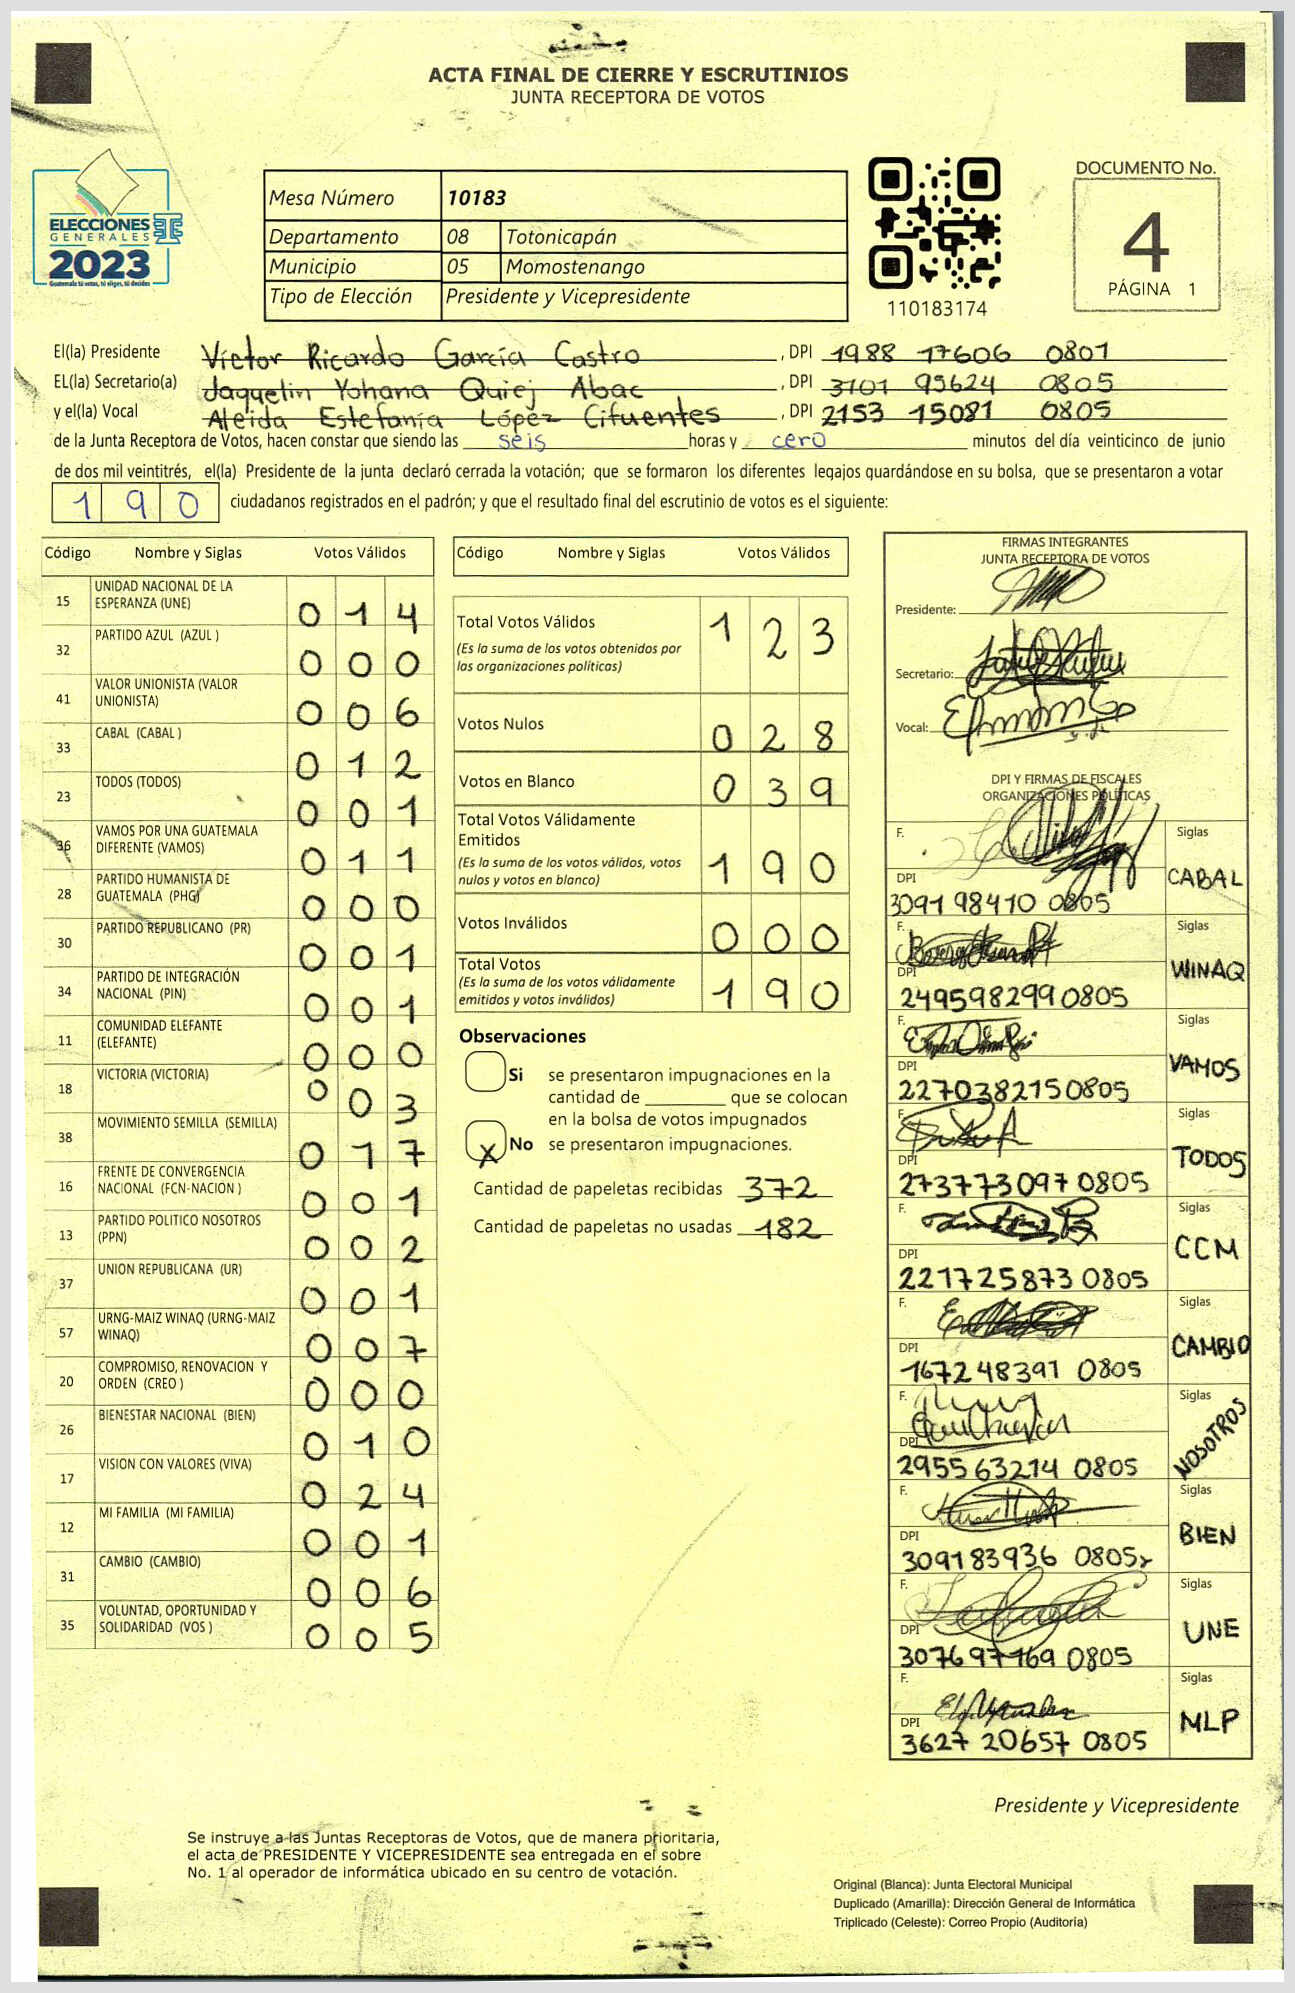 ACTA FINAL DE CIERRE Y ESCRUTINIOS
JUNTA RECEPTORA DE VOTOS
ELECCIONES
GENERALES
2023
Guatemala tú votas, tú eliges, tú decides
Mesa Número 10183
Departamento 08 Totonicapán
Municipio 05 Momostenango
Tipo de Elección Presidente y Vicepresidente
110183174
DOCUMENTO No.
4
PÁGINA 1
El(la) Presidente Víctor Ricardo García Castro , DPI 1988 17606 0801
EL(la) Secretario(a) Jaquelin Yohana Quiej Abac , DPI 3101 95624 0805
y el(la) Vocal Aleida Estefanía López Cifuentes , DPI 2153 15081 0805
de la Junta Receptora de Votos, hacen constar que siendo las seis horas y cero minutos del día veinticinco de junio
de dos mil veintitrés, el(la) Presidente de la junta declaró cerrada la votación; que se formaron los diferentes legajos quardándose en su bolsa, que se presentaron a votar
190 ciudadanos registrados en el padrón; y que el resultado final del escrutinio de votos es el siguiente:
Código Nombre y Siglas Votos Válidos
15 UNIDAD NACIONAL DE LA ESPERANZA (UNE) 014
32 PARTIDO AZUL (AZUL ) 000
41 VALOR UNIONISTA (VALOR UNIONISTA) 006
33 CABAL (CABAL ) 012
23 TODOS (TODOS) 001
36 VAMOS POR UNA GUATEMALA DIFERENTE (VAMOS) 011
28 PARTIDO HUMANISTA DE GUATEMALA (PHG) 000
30 PARTIDO REPUBLICANO (PR) 001
34 PARTIDO DE INTEGRACIÓN NACIONAL (PIN) 001
11 COMUNIDAD ELEFANTE (ELEFANTE) 000
18 VICTORIA (VICTORIA) 003
38 MOVIMIENTO SEMILLA (SEMILLA) 017
16 FRENTE DE CONVERGENCIA NACIONAL (FCN-NACION ) 001
13 PARTIDO POLITICO NOSOTROS (PPN) 002
37 UNION REPUBLICANA (UR) 001
57 URNG-MAIZ WINAQ (URNG-MAIZ WINAQ) 007
20 COMPROMISO, RENOVACION Y ORDEN (CREO ) 000
26 BIENESTAR NACIONAL (BIEN) 010
17 VISION CON VALORES (VIVA) 024
12 MI FAMILIA (MI FAMILIA) 001
31 CAMBIO (CAMBIO) 006
35 VOLUNTAD, OPORTUNIDAD Y SOLIDARIDAD (VOS ) 005
Código Nombre y Siglas Votos Válidos
Total Votos Válidos 123
(Es la suma de los votos obtenidos por
las organizaciones políticas)
Votos Nulos 028
Votos en Blanco 039
Total Votos Válidamente
Emitidos
(Es la suma de los votos válidos, votos
nulos y votos en blanco) 190
Votos Inválidos 000
Total Votos
(Es la suma de los votos válidamente
emitidos y votos inválidos) 190
Observaciones
Si se presentaron impugnaciones en la
cantidad de ________ que se colocan
en la bolsa de votos impugnados
X No se presentaron impugnaciones.
Cantidad de papeletas recibidas 372
Cantidad de papeletas no usadas 182
FIRMAS INTEGRANTES
JUNTA RECEPTORA DE VOTOS
Presidente:
Secretario:
Vocal:
DPI Y FIRMAS DE FISCALES
ORGANIZACIONES POLÍTICAS
F. Siglas
DPI CABAL
3091 98410 0805
F. Siglas
DPI WINAQ
249598299 0805
F. Siglas
DPI VAMOS
2270382150805
F. Siglas
DPI TODOS
273773097 0805
F. Siglas
DPI CCM
221725873 0805
F. Siglas
DPI CAMBIO
1672 48391 0805
F. Siglas
DPI NOSOTROS
2955 63214 0805
F. Siglas
DPI BIEN
309183936 0805
F. Siglas
DPI UNE
307697169 0805
F. Siglas
DPI MLP
3627 20657 0805
Presidente y Vicepresidente
Se instruye a las Juntas Receptoras de Votos, que de manera prioritaria,
el acta de PRESIDENTE Y VICEPRESIDENTE sea entregada en el sobre
No. 1 al operador de informática ubicado en su centro de votación.
Original (Blanca): Junta Electoral Municipal
Duplicado (Amarilla): Dirección General de Informática
Triplicado (Celeste): Correo Propio (Auditoría)